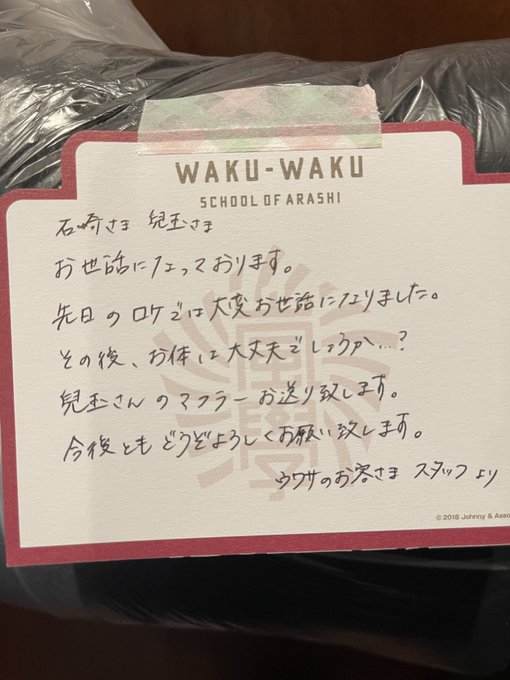 WAKU-WAKU
SCHOOL OF ARASHI
石崎さま 兒玉さま
お世話になっております。
先日のロケでは大変お世話になりました。
その後、お体は大丈夫でしょうか…?
兒玉さんのマフラーお送り致します。
今後ともどうぞよろしくお願い致します。
ウワサのお客さま スタッフより
©2018 Johnny & Asso